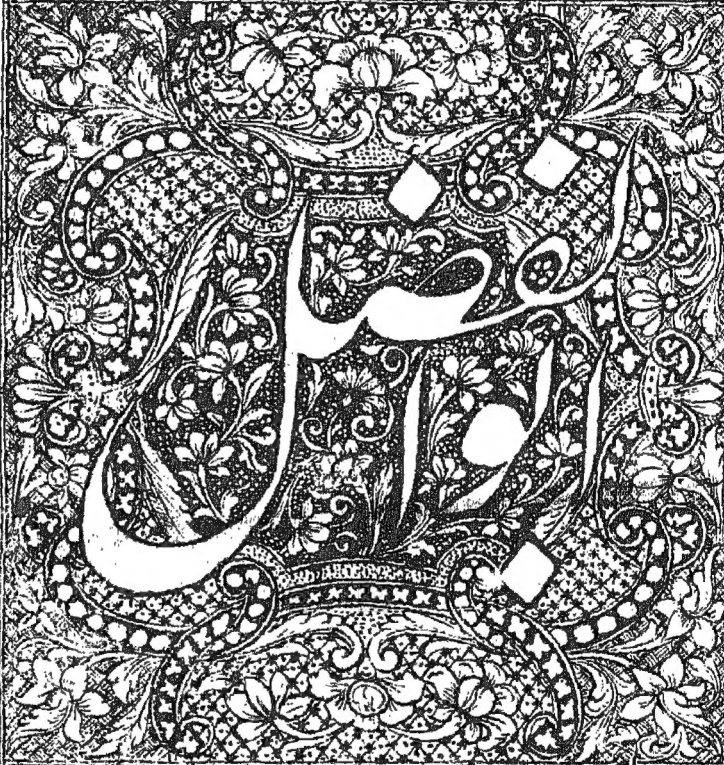 ابوالفضل